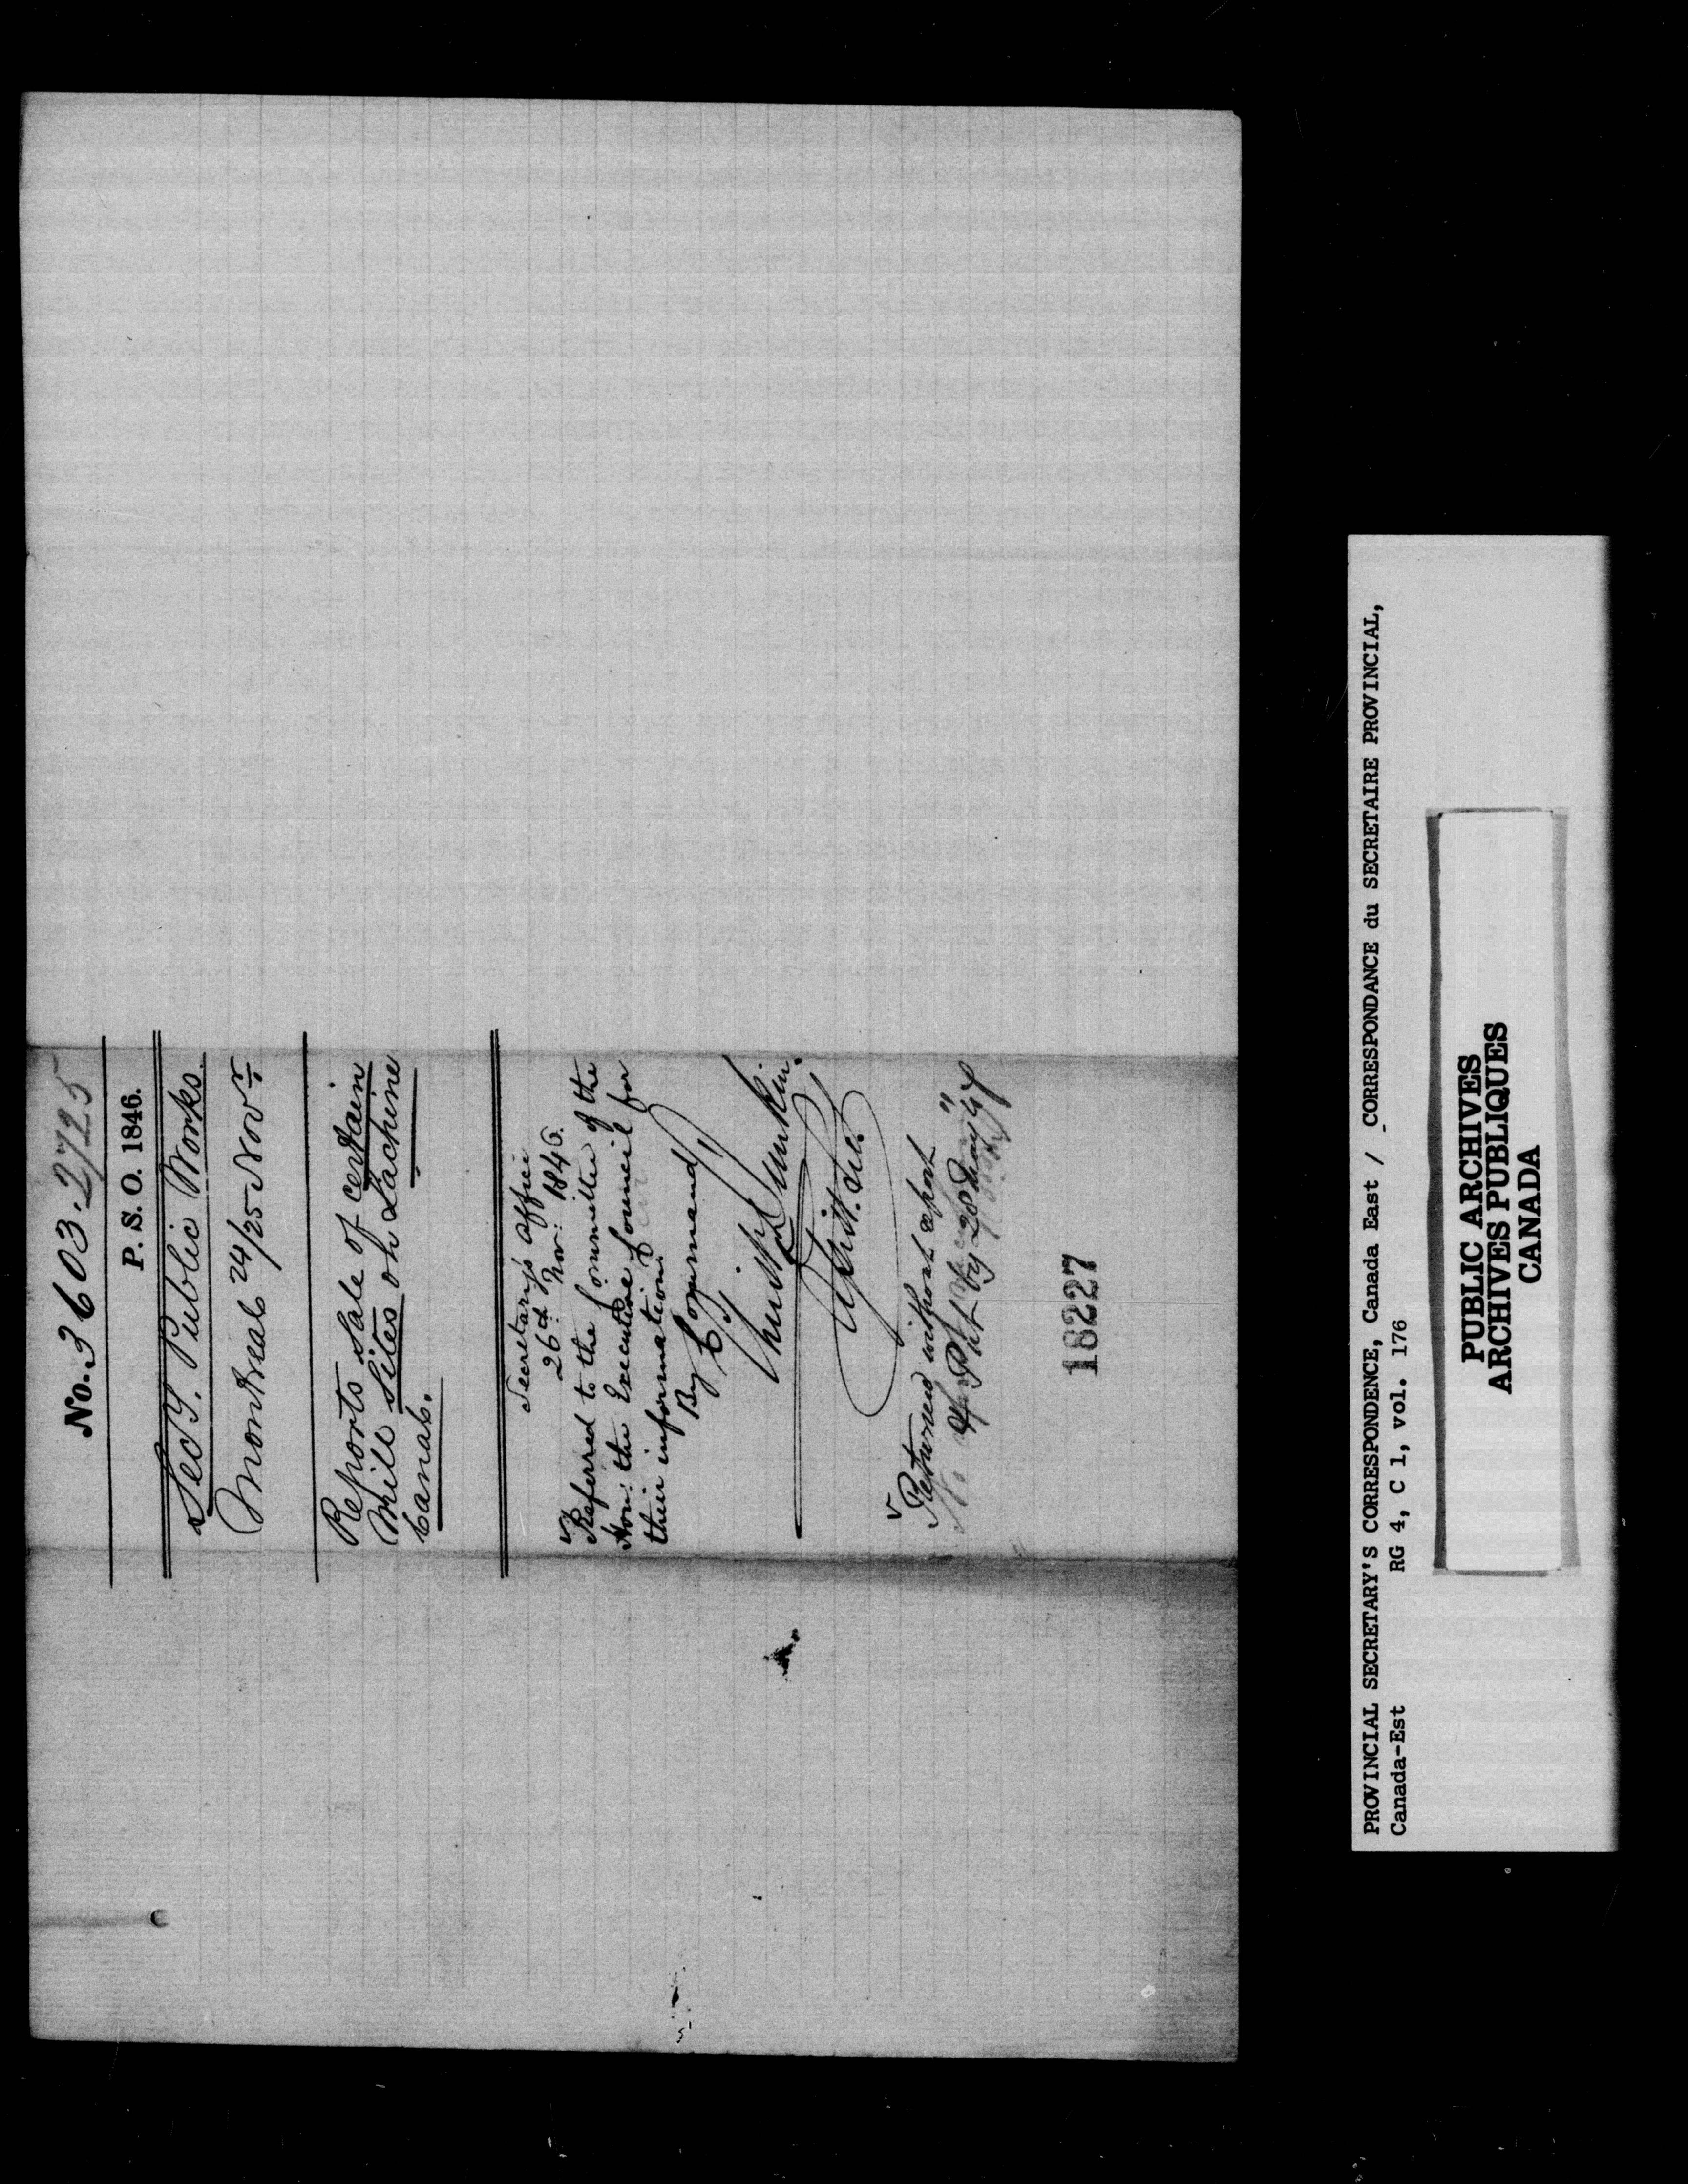 No. 3603. 2725
P. S. O. 1846.
Secy. Public Works.
Montreal 24/25 Novr
Reports Sale of certain
Mill Sites on Lachine
Canal.
Secretary's Office
26th Nov: 1846.
Referred to the Committee of the
Hon: the Executive Council for
their information
By Command
Asst. Sec.
Returned without report
Put by 28 May 47
18227
PROVINCIAL SECRETARY'S CORRESPONDENCE, Canada East / CORRESPONDANCE du SECRETAIRE PROVINCIAL,
Canada-Est RG 4, C 1, vol. 176
PUBLIC ARCHIVES
ARCHIVES PUBLIQUES
CANADA